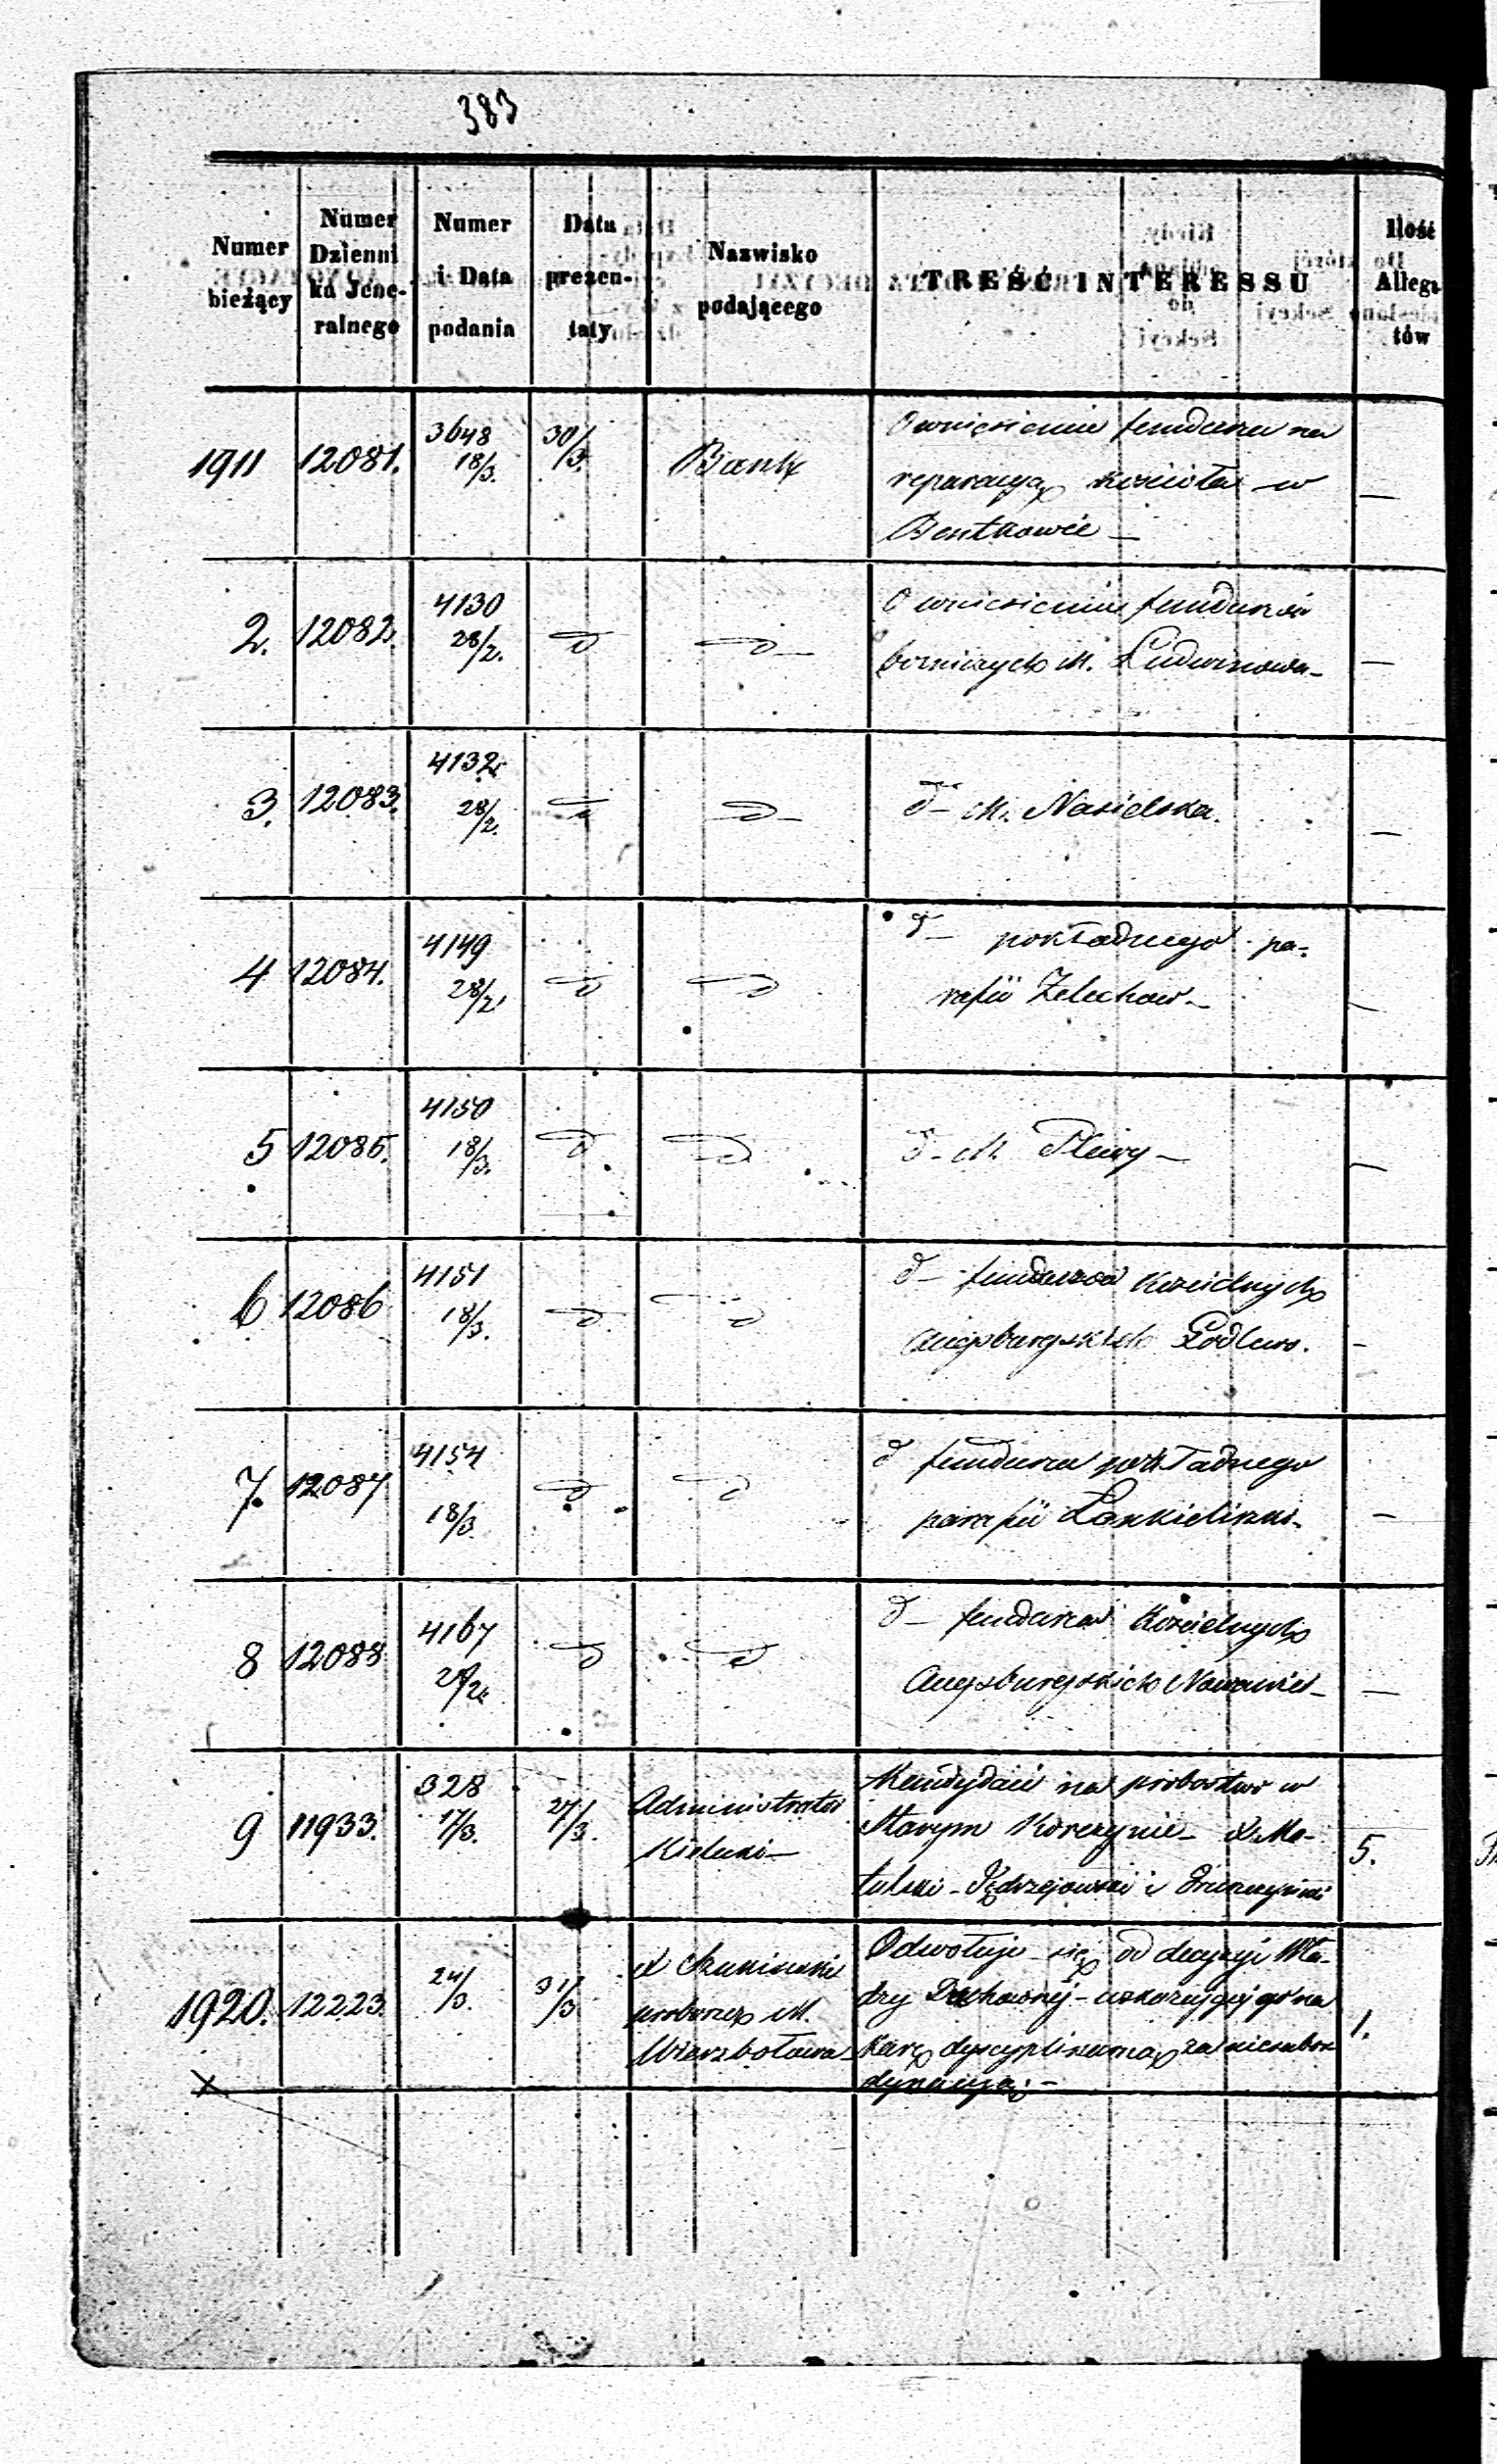 383
Numer bieżący
Numer Dzienni ka Jene- ralnego
Numer i Data podania
Data prezen- taty
Nazwisko podającego
TREŚĆ INTERESSU
Ilość Allega tów
1911 12081. 3648 18/3. 30/3. Bank O wniesieniu funduszu na
reparacyą kościoła w
Bentkowie —
2. 12082. 4130 28/2. d d O wniesieniu funduszów
bożniczych M. Ludwinowa —
3. 12083. 4132 28/2. d d d – M. Nasielska. —
4 12084. 4149 28/2. d d d – pokładnego pa-
rafii Zelechow —
5 12085. 4150 18/3. d d d – M. Plewy —
6 12086 4151 18/3. d d d – funduszów kościelnych
Augsburgskich Godlewo. —
7. 12087 4154 18/3 d d d funduszu pokładnego
parafii —
8 12088 4167 28/2 d d d – funduszów Kościelnych
Augsburgskich —
9 11933. 328 17/3. 27/3. Administrator Kielecki — Kandydaci na probostwo w
Starym Korczynie – X. Ma-
tulski – Jędrzejowski i 5.
1920. 12223. 24/3. 31/3 X proboszcz M. Wierzbołowa Odwołuje się od decyzyi Wła-
dzy Duchownej – wskazującej go na
karę dyscyplinarną za niesubor
dynacyą. – 1.